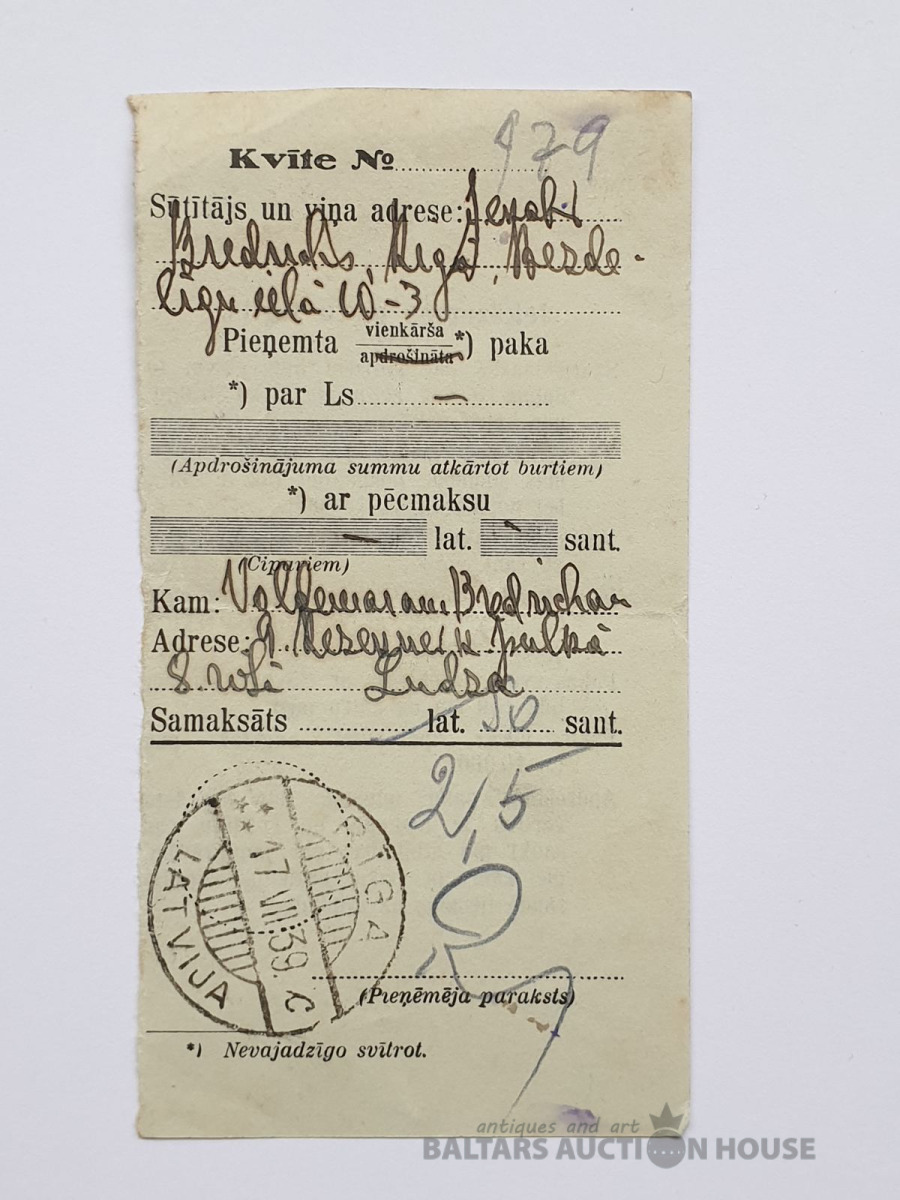 Kvīte № 979
Sūtītājs un viņa adrese:
Rīgā, Bezde-
līgu ielā 10-3
Pieņemta vienkārša *) paka
apdrošināta
*) par Ls —
(Apdrošinājuma summu atkārtot burtiem)
*) ar pēcmaksu
— lat. sant.
(Cipariem)
Kam: Voldemaram
Adrese: 9. Rezeknes k. pulkā
8. Ludza
Samaksāts lat. 50 sant.
2,5
RIGA
LATVIJA
17 VIII 39. C
(Pieņēmēja paraksts)
*) Nevajadzīgo svītrot.
antiques and art
BALTARS AUCTION HOUSE